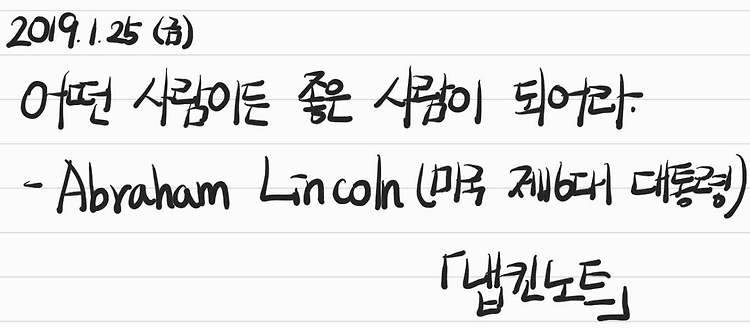 2019.1.25 (금)
어떤 사람이든 좋은 사람이 되어라.
- Abraham Lincoln (미국 제16대 대통령)
「냅킨노트」